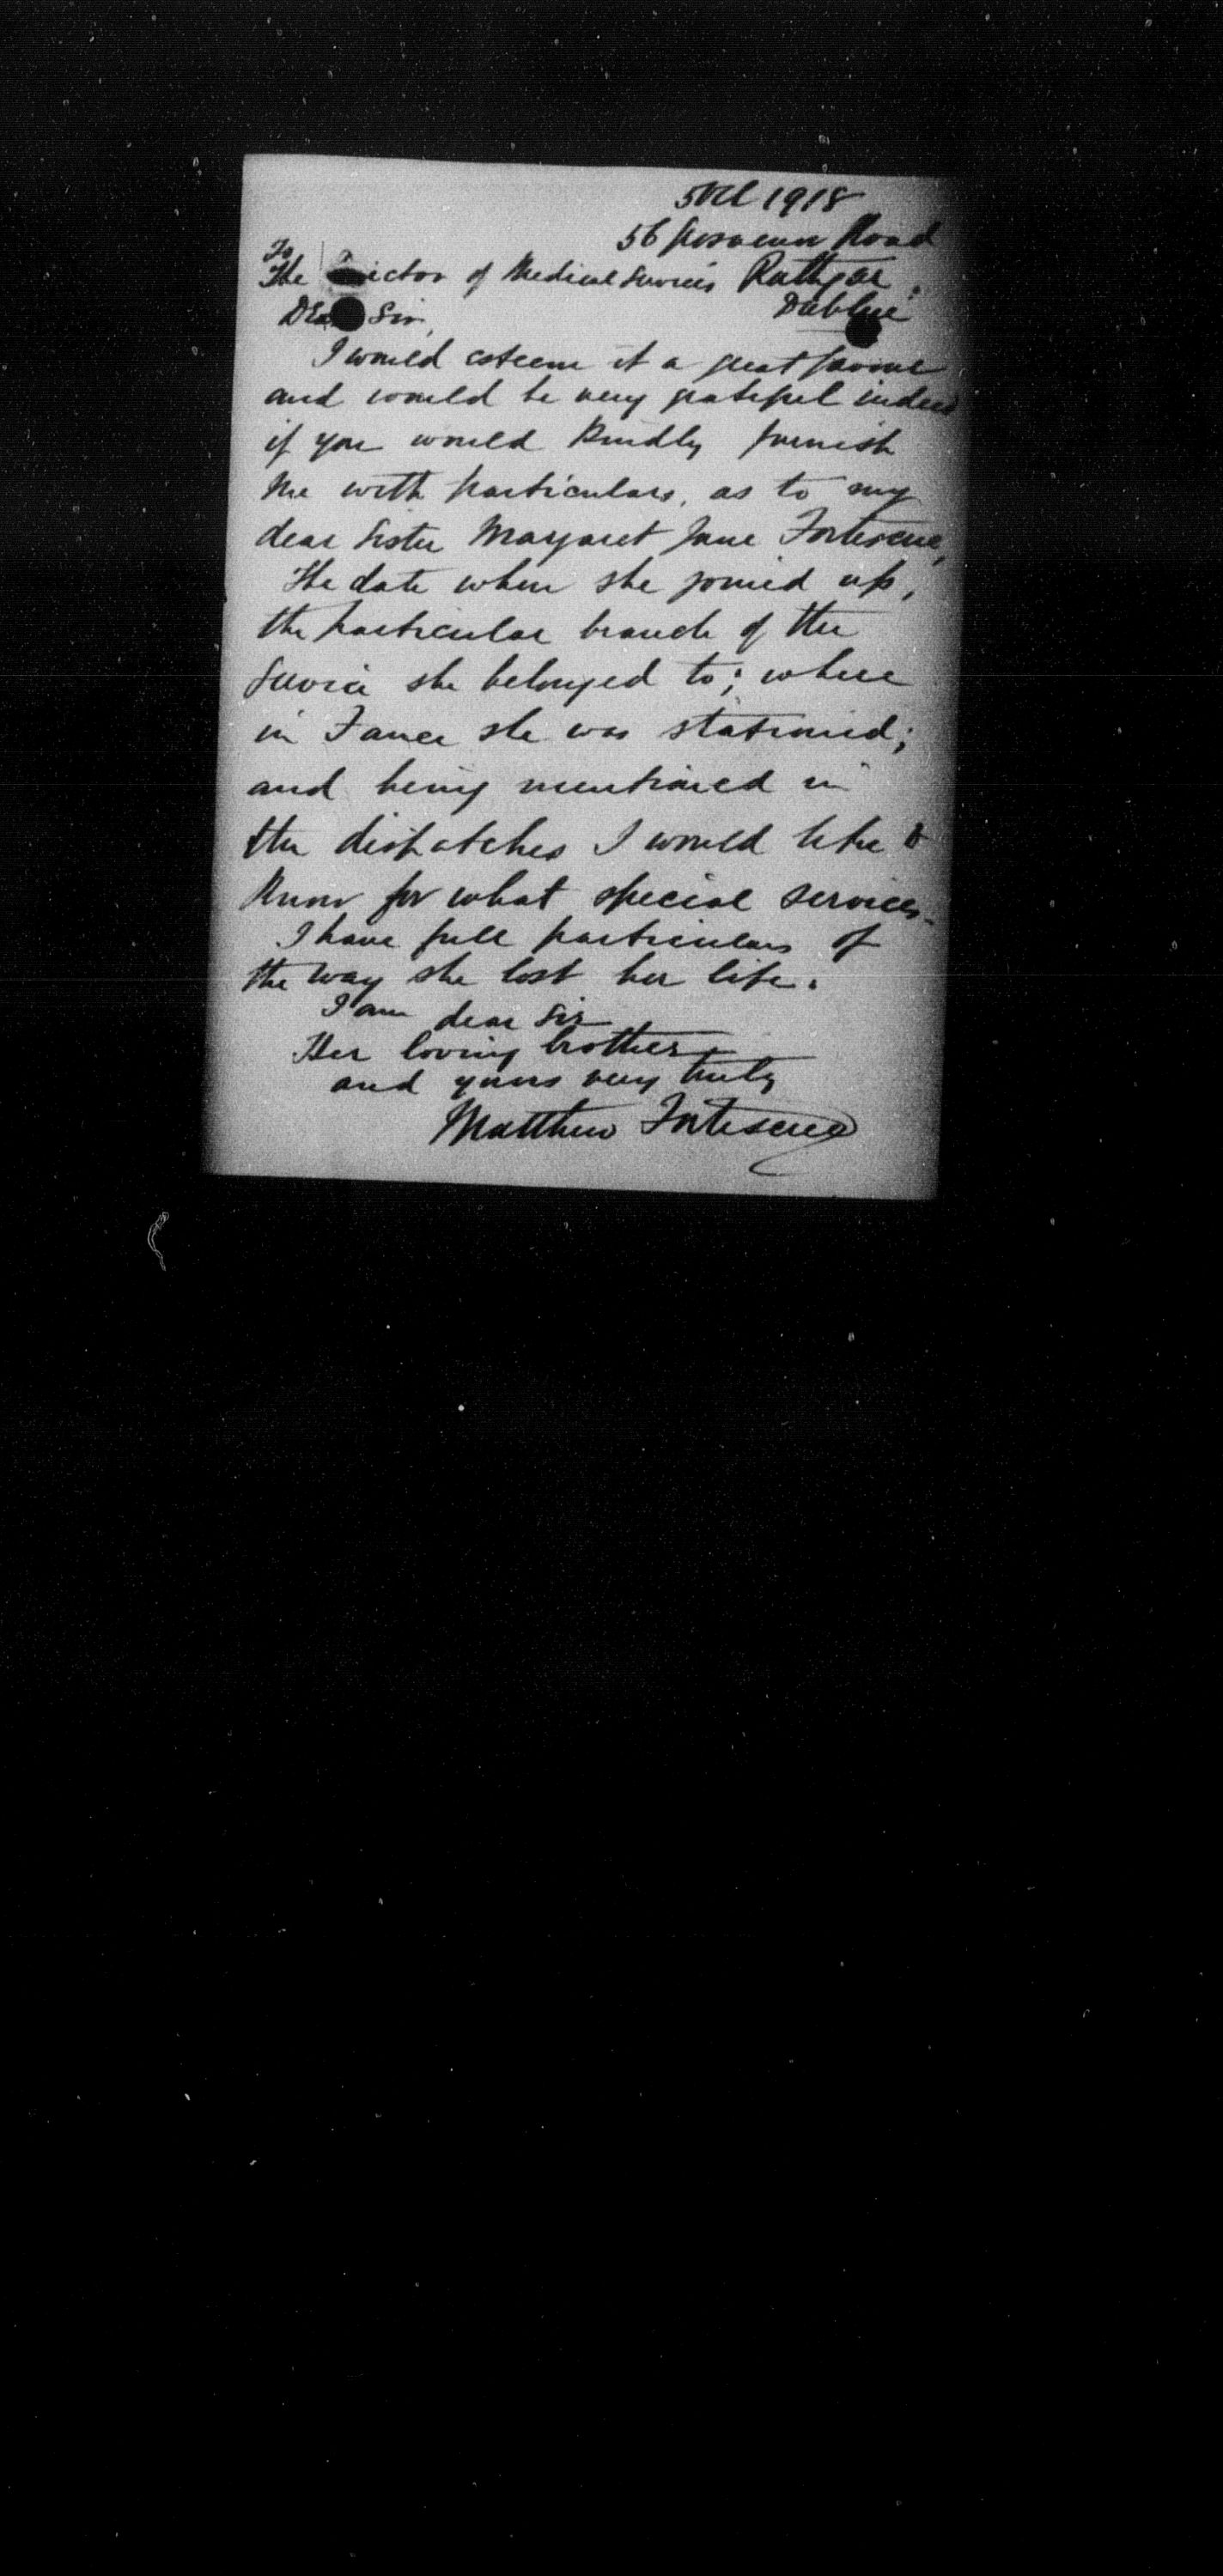 5 Oct 1918
56 Grosvenor Road
To
The Director of Medical Services Rathgar.
Dublin
Dear Sir,
I would esteem it a great favour
and would be very grateful indeed
if you would kindly furnish
me with particulars, as to my
dear Sister Margaret Jane Fortescue,
The date when she joined up,
the particular branch of the
Service she belonged to; where
in Fance she was stationed;
and being mentioned in
the dispatches I would like to
know for what special services.
I have full particulars of
the way she lost her life.
I am dear Sir
Her loving brother
and yours very truly
Matthew Fortescue